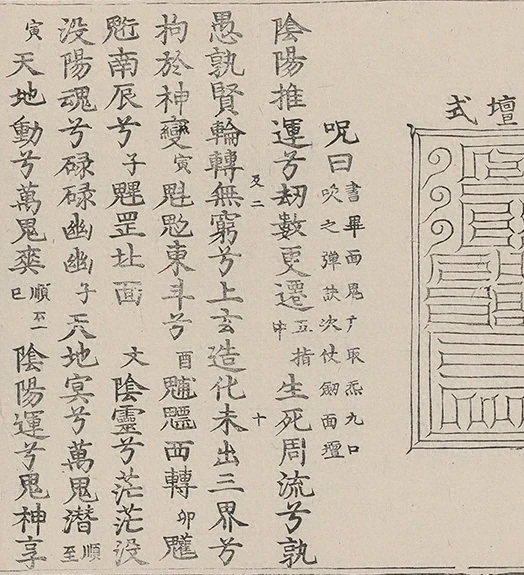 壇式
呪曰 書畢面鬼户取炁九口
吹之彈訣次仗劒面壇
陰陽推運兮刼數更遷 中 五指 生死周流兮孰
愚孰賢輪轉無窮兮上玄造化未出三界兮
拘於神變 寅 魁 東斗兮 酉 西轉 卯
南辰兮 子 罡北面 文 陰靈兮茫茫没
没陽魂兮碌碌幽幽 子 天地冥兮萬鬼潛 順至
寅 天地動兮萬鬼 順至 巳 陰陽運兮鬼神享